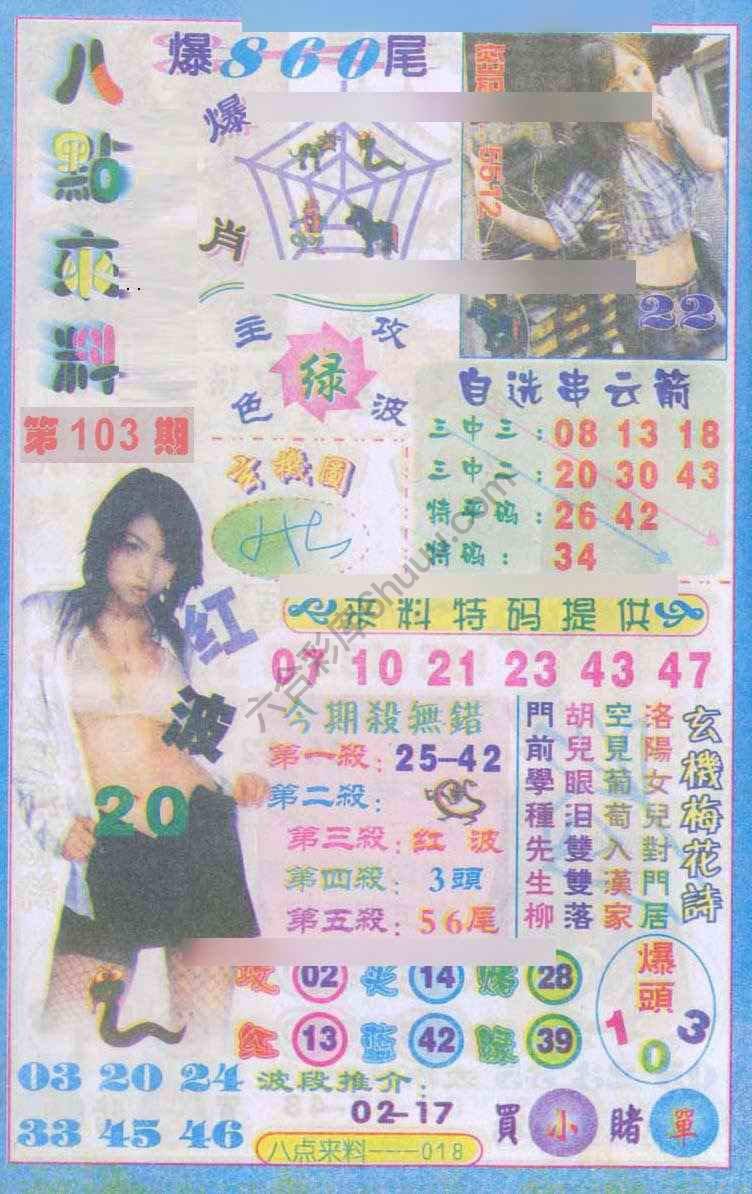 八點來料
爆860尾
爆肖
5512
22
主攻
绿
色波
自选串云箭
三中三:08 13 18
三中二:20 30 43
特平码:26 42
特码:34
第103期
玄機圖
红波
20
來料特码提供
07 10 21 23 43 47
今期殺無錯
第一殺:25-42
第二殺:
第三殺:红波
第四殺:3頭
第五殺:56尾
玄機梅花詩
洛陽女兒對門居
空見葡萄入漢家
胡兒眼泪雙雙落
門前學種先生柳
02 14 28
红 13 蓝 42 绿 39
爆頭
1 0 3
03 20 24
33 45 46
波段推介:
02-17
買小賭單
八点来料---018
六合彩库 6huuu.com